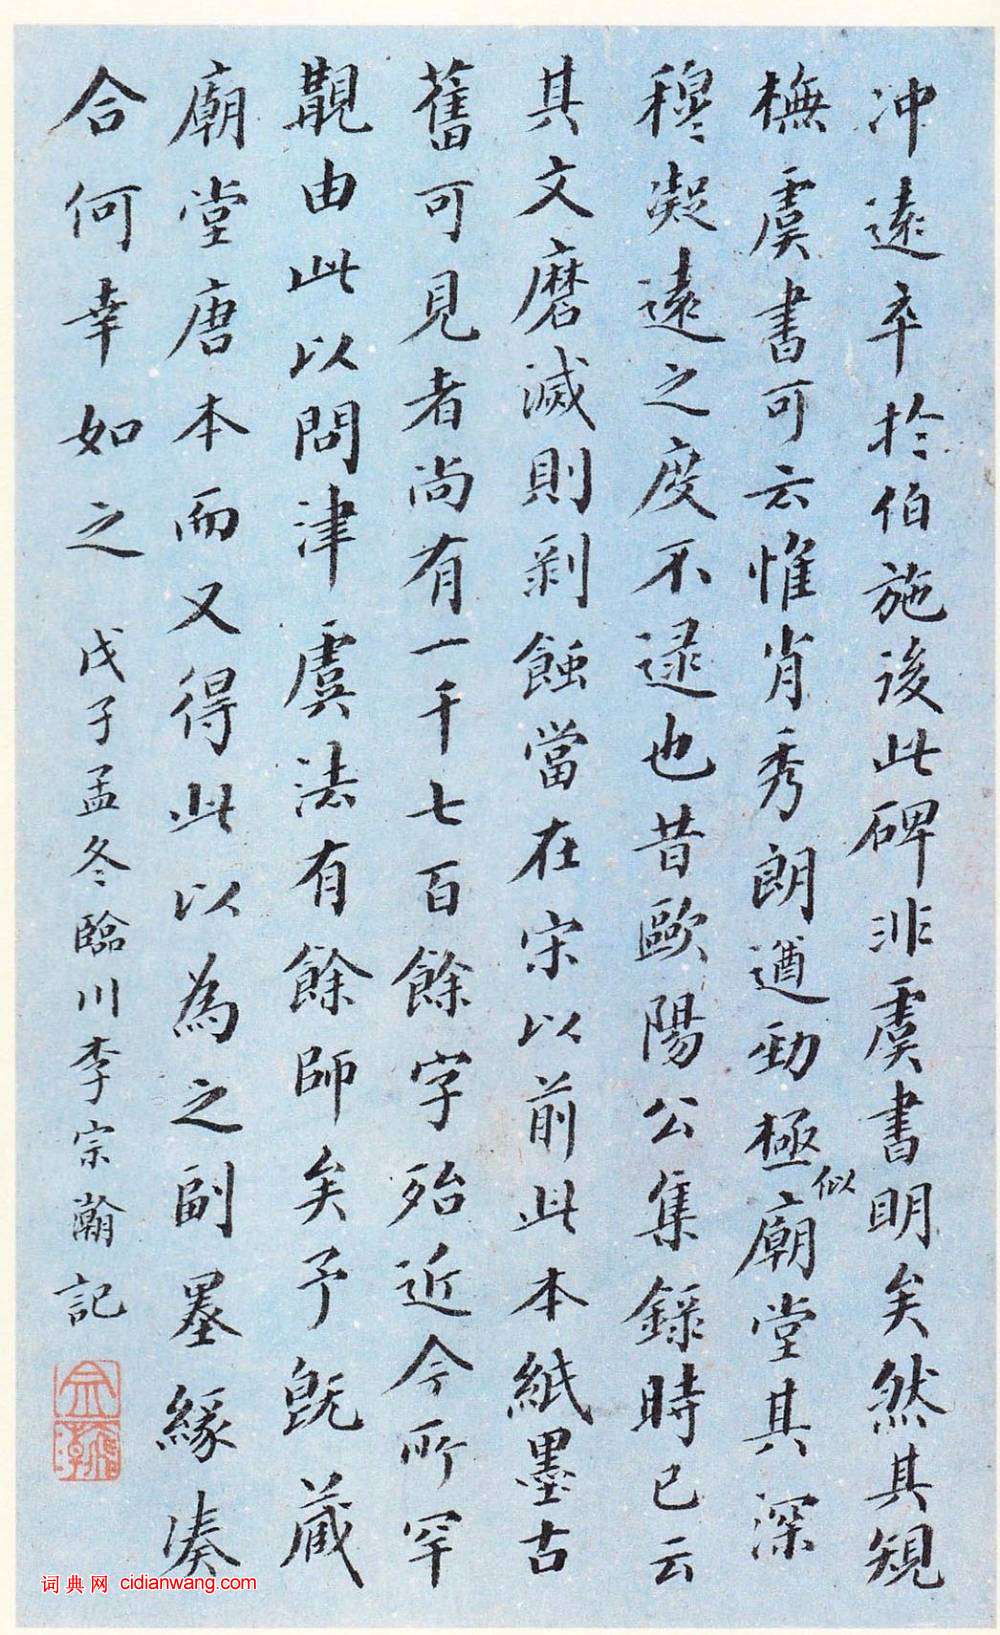 冲遠卒於伯施後此碑非虞書明矣然其規
橅虞書可云惟肖秀朗遒勁極似廟堂其深
穆凝遠之度不逮也昔歐陽公集錄時已云
其文磨滅則剥蝕當在宋以前此本紙墨古
舊可見者尚有一千七百餘字殆近今所罕
覯由此以問津虞法有餘師矣予旣藏
廟堂唐本而又得此以為之副墨緣湊
合何幸如之
戊子孟冬臨川李宗瀚記
宗瀚
词典网 cidianwang.com